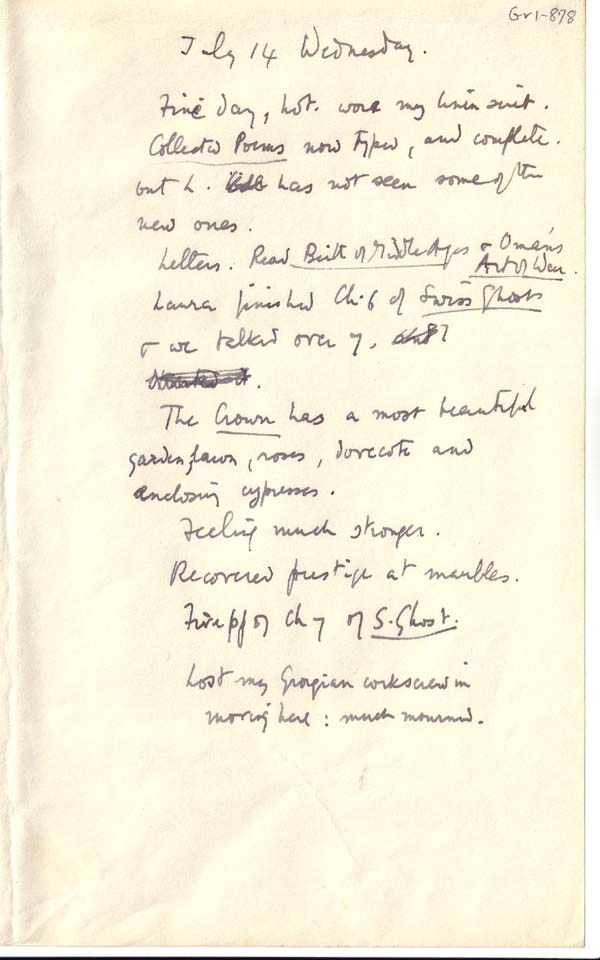 Gr1-878
July 14 Wednesday.
Fine day, hot. wore my linen suit.
Collected Poems now typed, and complete.
but L. has not seen some of the
new ones.
Letters. Read Birth of Middle Ages & Oman's
Art of War.
Laura finished Ch. 6 of Swiss Ghosts
& we talked over 7.
The Crown has a most beautiful
garden, lawn, roses, dovecote and
enclosing cypresses.
Feeling much stronger.
Recovered prestige at marbles.
Five pp of Ch 7 of S. Ghost.
Lost my Georgian corkscrew in
moving here: much mourned.